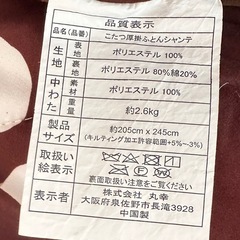 品質表示
品名(品番) こたつ厚掛ふとんシャンテ
生地 表地 ポリエステル 100%
裏地 ポリエステル 80%綿20%
中わた ポリエステル 100%
約2.6kg
製品サイズ 約205cm×245cm
(キルティング加工許容範囲+5%~-3%)
取扱い絵表示
裏面取扱い注意をご覧ください
表示者 株式会社 丸幸
大阪府泉佐野市長滝3928
中国製